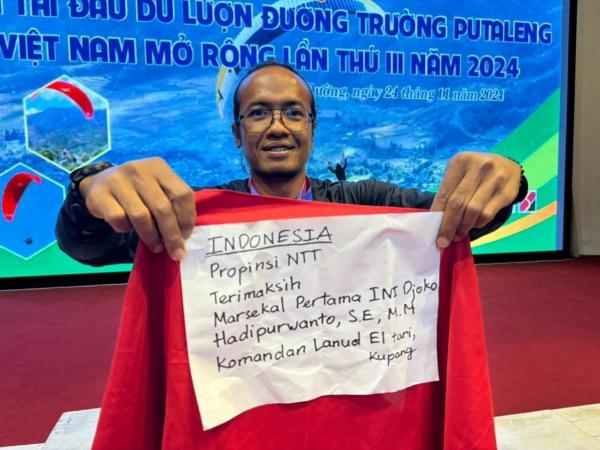 TẠI ĐẤU DÙ LƯỢN ĐƯỜNG TRƯỜNG PUTALENG
VIỆT NAM MỞ RỘNG LẦN THỨ III NĂM 2024
ngày 24 tháng 11 năm 2024
INDONESIA
Propinsi NTT
Terimaksih
Marsekal Pertama INI Djoko
Hadipurwanto, S.E, M.M
Komandan Lanud El tari,
Kupang